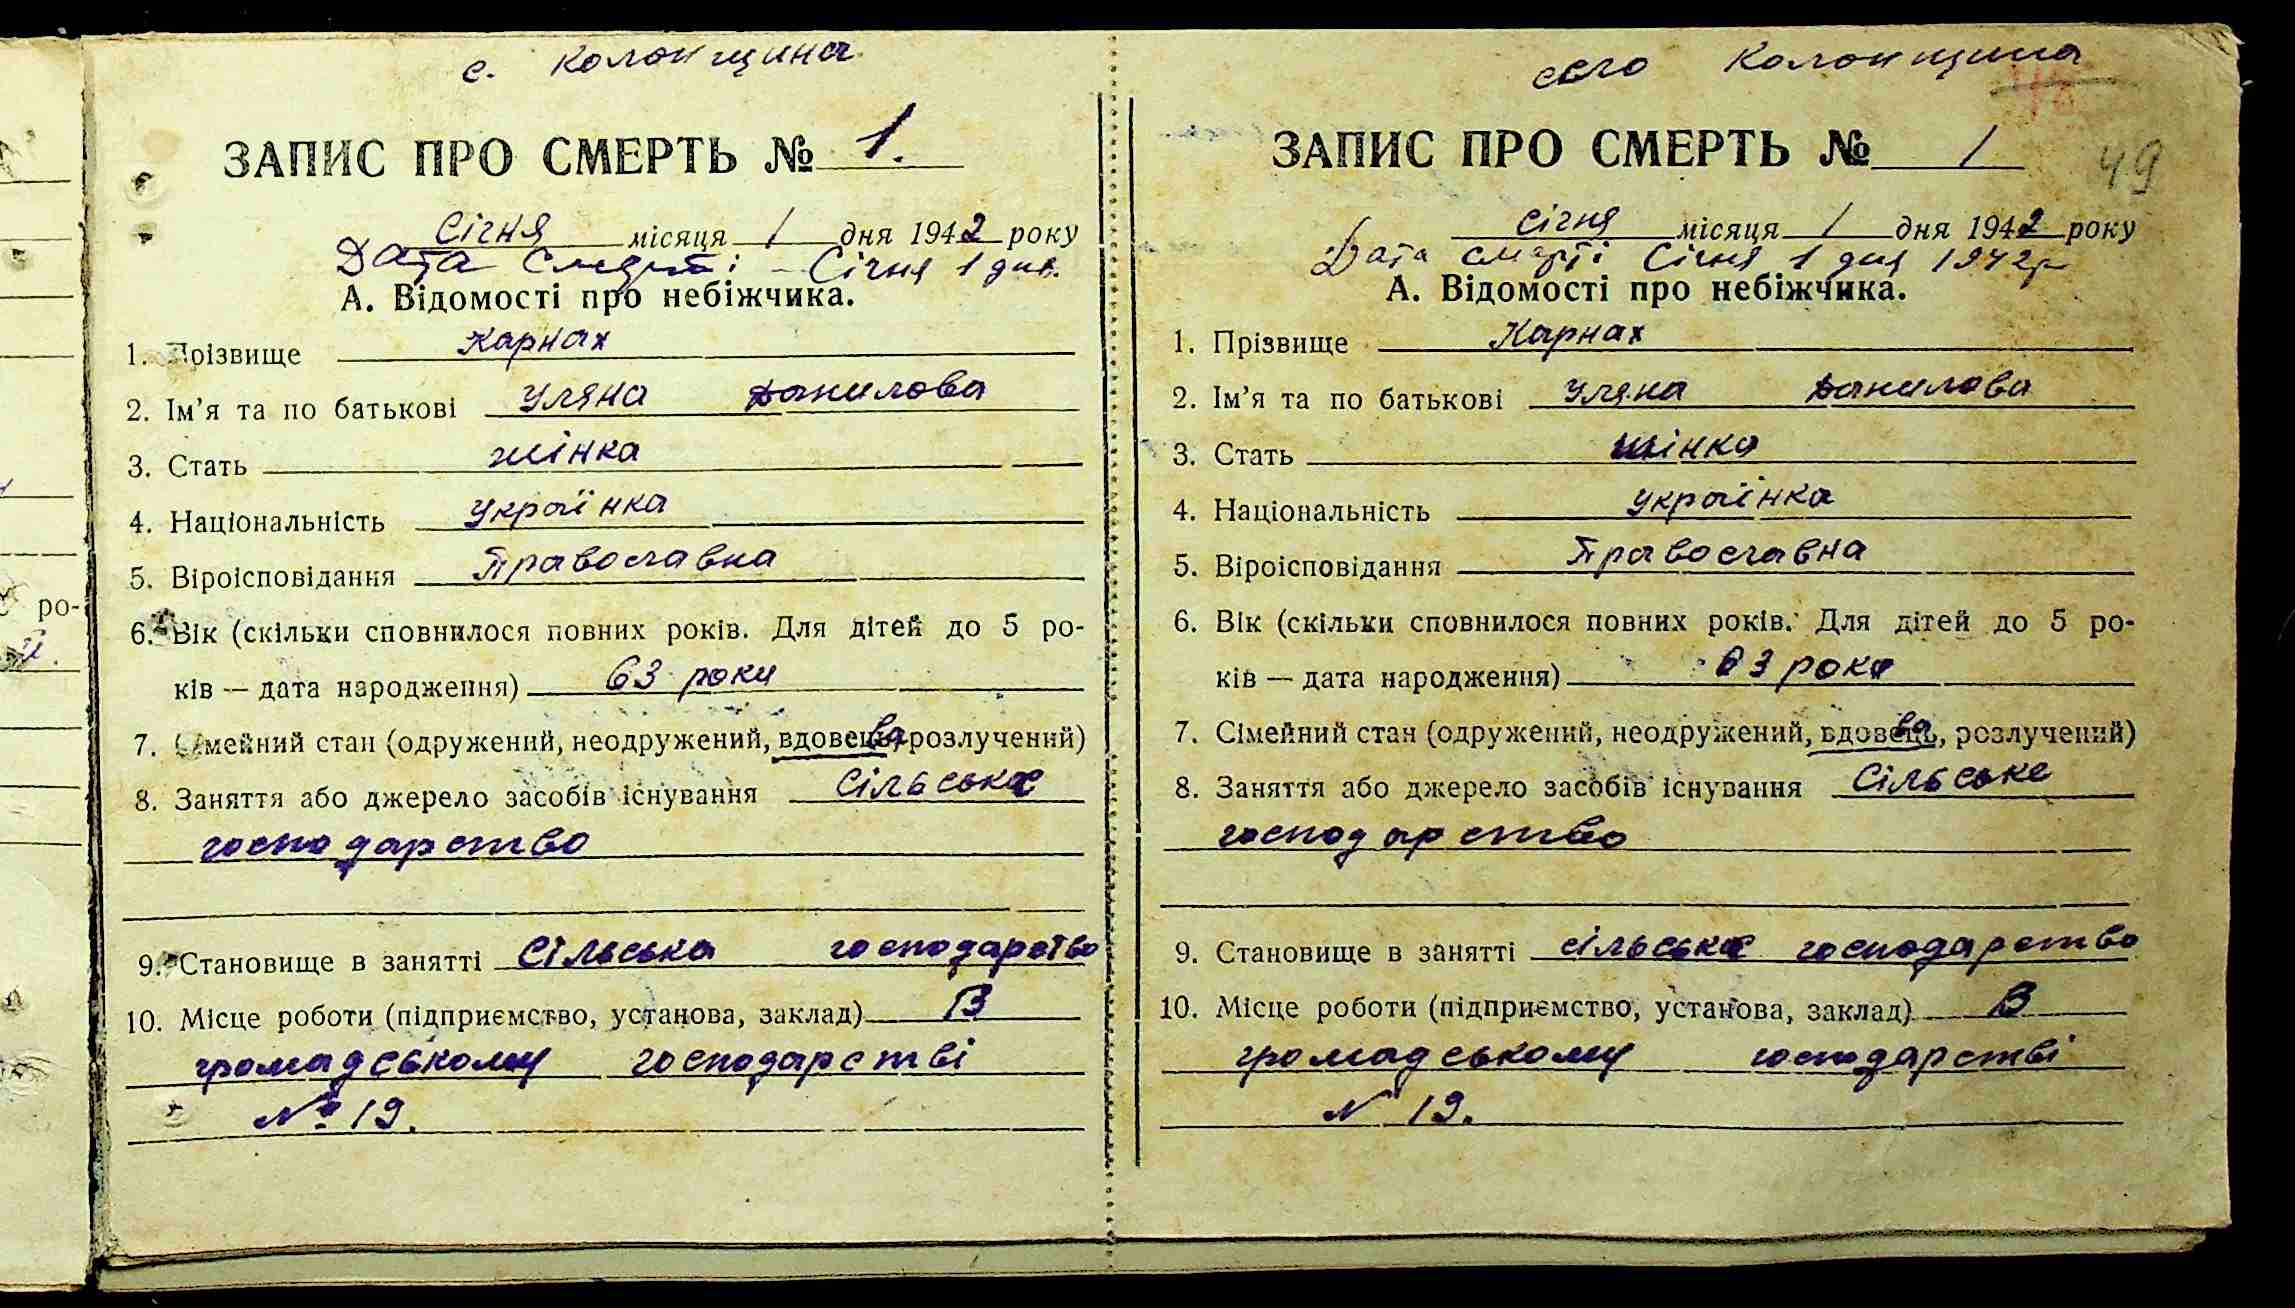 с. Колонщина
ЗАПИС ПРО СМЕРТЬ № 1.
Січня місяця 1 дня 1942 року
Дата Смерті – Січня 1 дня.
А. Відомості про небіжчика.
1. Прізвище Карнах
2. Ім'я та по батькові Уляна Данилова
3. Стать жінка
4. Національність Українка
5. Віроісповідання Православна
6. Вік (скільки сповнилося повних років. Для дітей до 5 ро-
ків — дата народження) 63 роки
7. Сімейний стан (одружений, неодружений, вдова, розлучений)
8. Заняття або джерело засобів існування Сільське
господарство
9. Становище в занятті Сільська господарство
10. Місце роботи (підприємство, установа, заклад) В
громадському господарстві
№ 19.
село Колонщина
49
ЗАПИС ПРО СМЕРТЬ № 1
Січня місяця 1 дня 1942 року
Дата смерті Січня 1 дня 1942р
А. Відомості про небіжчика.
1. Прізвище Карнах
2. Ім'я та по батькові Уляна Данилова
3. Стать жінка
4. Національність Українка
5. Віроісповідання Православна
6. Вік (скільки сповнилося повних років. Для дітей до 5 ро-
ків — дата народження) 63 роки
7. Сімейний стан (одружений, неодружений, вдова, розлучений)
8. Заняття або джерело засобів існування Сільське
господарство
9. Становище в занятті сільське господарство
10. Місце роботи (підприємство, установа, заклад) В
громадському господарстві
N 19.
ро-